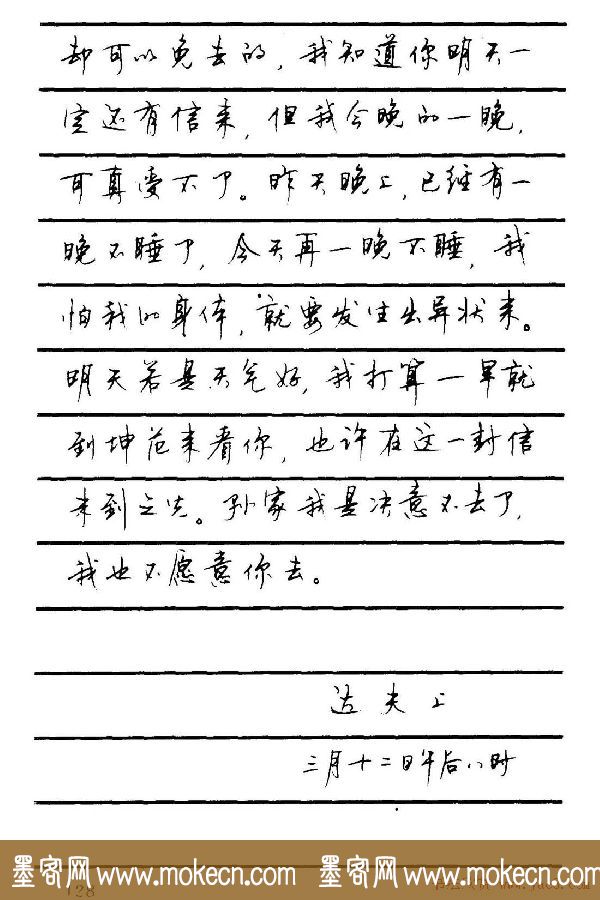 却可以免去的，我知道你明天一
定还有信来，但我今晚的一晚，
可真受不了。昨天晚上，已经有一
晚不睡了，今天再一晚不睡，我
怕我的身体，就要发生出异状来。
明天若是天气好，我打算一早就
到坤范来看你，也许在这一封信
来到之先。孙家我是决意不去了，
我也不愿意你去。
达夫上
三月十二日午后八时
墨客网 www.mokecn.com 墨客网 www.mokecn.com
128